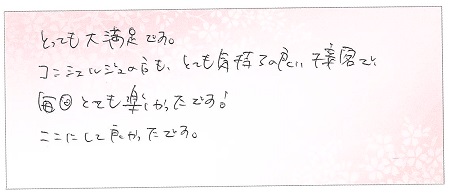 とっても大満足です。
コンシェルジュの方も、とても気持ちの良い接客で、
毎回とても楽しかったです!
ここにして良かったです。